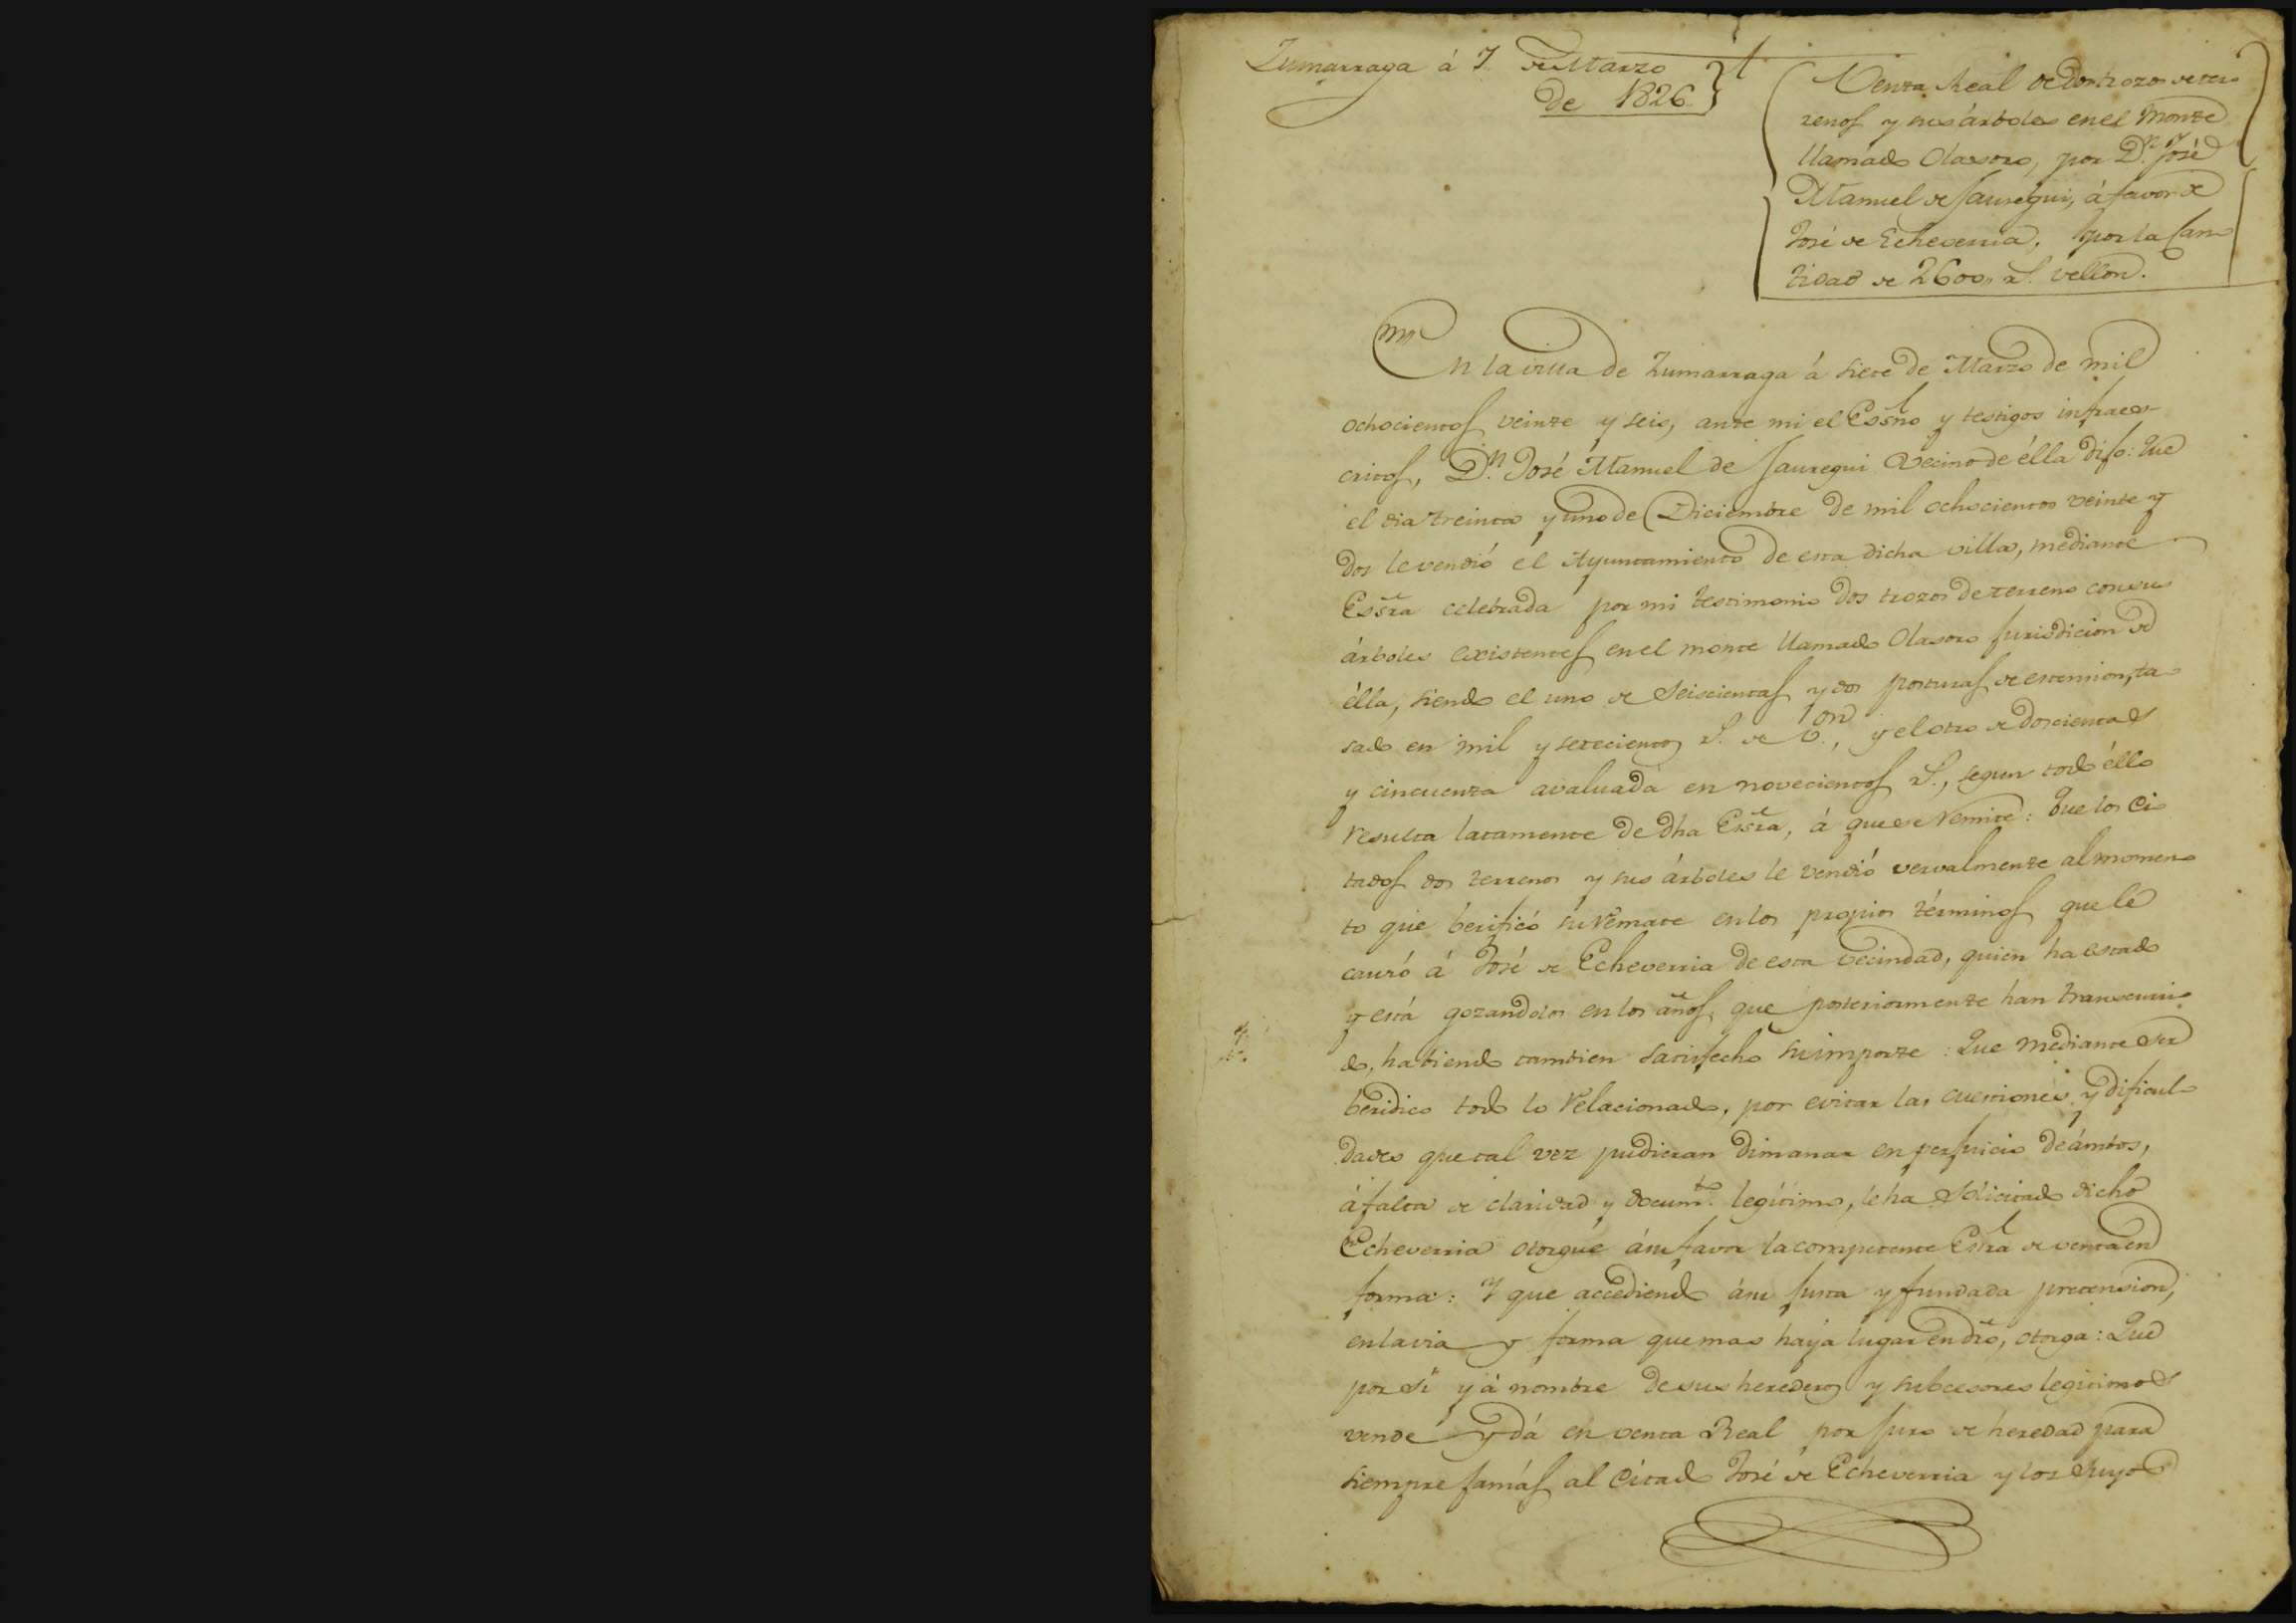 Zumarraga á 7 de Marzo
de 1826
Venta Real de dos trozos de ter-
renos y sus árboles en el Monte
llamado Olasoro, por Dn. José
Manuel de Jauregui, á favor de
José de Echeverria, por la Can-
tidad de 2600,, rs. vellon.
En la villa de Zumarraga á siete de Marzo de mil
ochocientos veinte y seis, ante mi el Essno y testigos infraes-
critos, Dn. José Manuel de Jauregui Vecino de élla dijo: Que
el dia treinta y uno de Diciembre de mil ochocientos veinte y
dos le vendió el Ayuntamiento de esta dicha villa, mediante
Essra celebrada por mi testimonio dos trozos de terreno con sus
árboles existentes en el monte llamado Olasoro Jurisdicion de
élla, siendo el uno de Seiscientas y dos posturas de estension, ta-
sado en mil y setecientos rs. de von., y el otro de doscientas
y cincuenta avaluada en novecientos rs., segun todo éllo
resulta latamente de dha Essra, á que se remite: Que los Ci-
tados dos terrenos y sus árboles le vendió vervalmente al momen-
to que berificó su remate en los propios términos que le
causó á José de Echeverria de esta Vecindad, quien ha estado
y está gozandolos en los años que posteriormente han transcurri-
do, habiendo tambien satisfecho su importe: Que mediante ser
béridico todo lo relacionado, por evitar las cuestiones y dificul-
dades que tal vez pudieran dimanar en perjuicio de ámbos,
á falta de claridad y documto. legítimo, le ha Solicitado dicho
Echeverria otorgue á su favor la competente Essra de venta en
forma: Y que accediendo á su justa y fundada pretension,
en la via y forma que mas haya lugar en dro, otorga: Que
por sí y á nombre de sus herederos y subcesores legitimos
vende y dá en venta Real por juro de heredad para
siempre jamás al Citado José de Echeverria y los Suyos